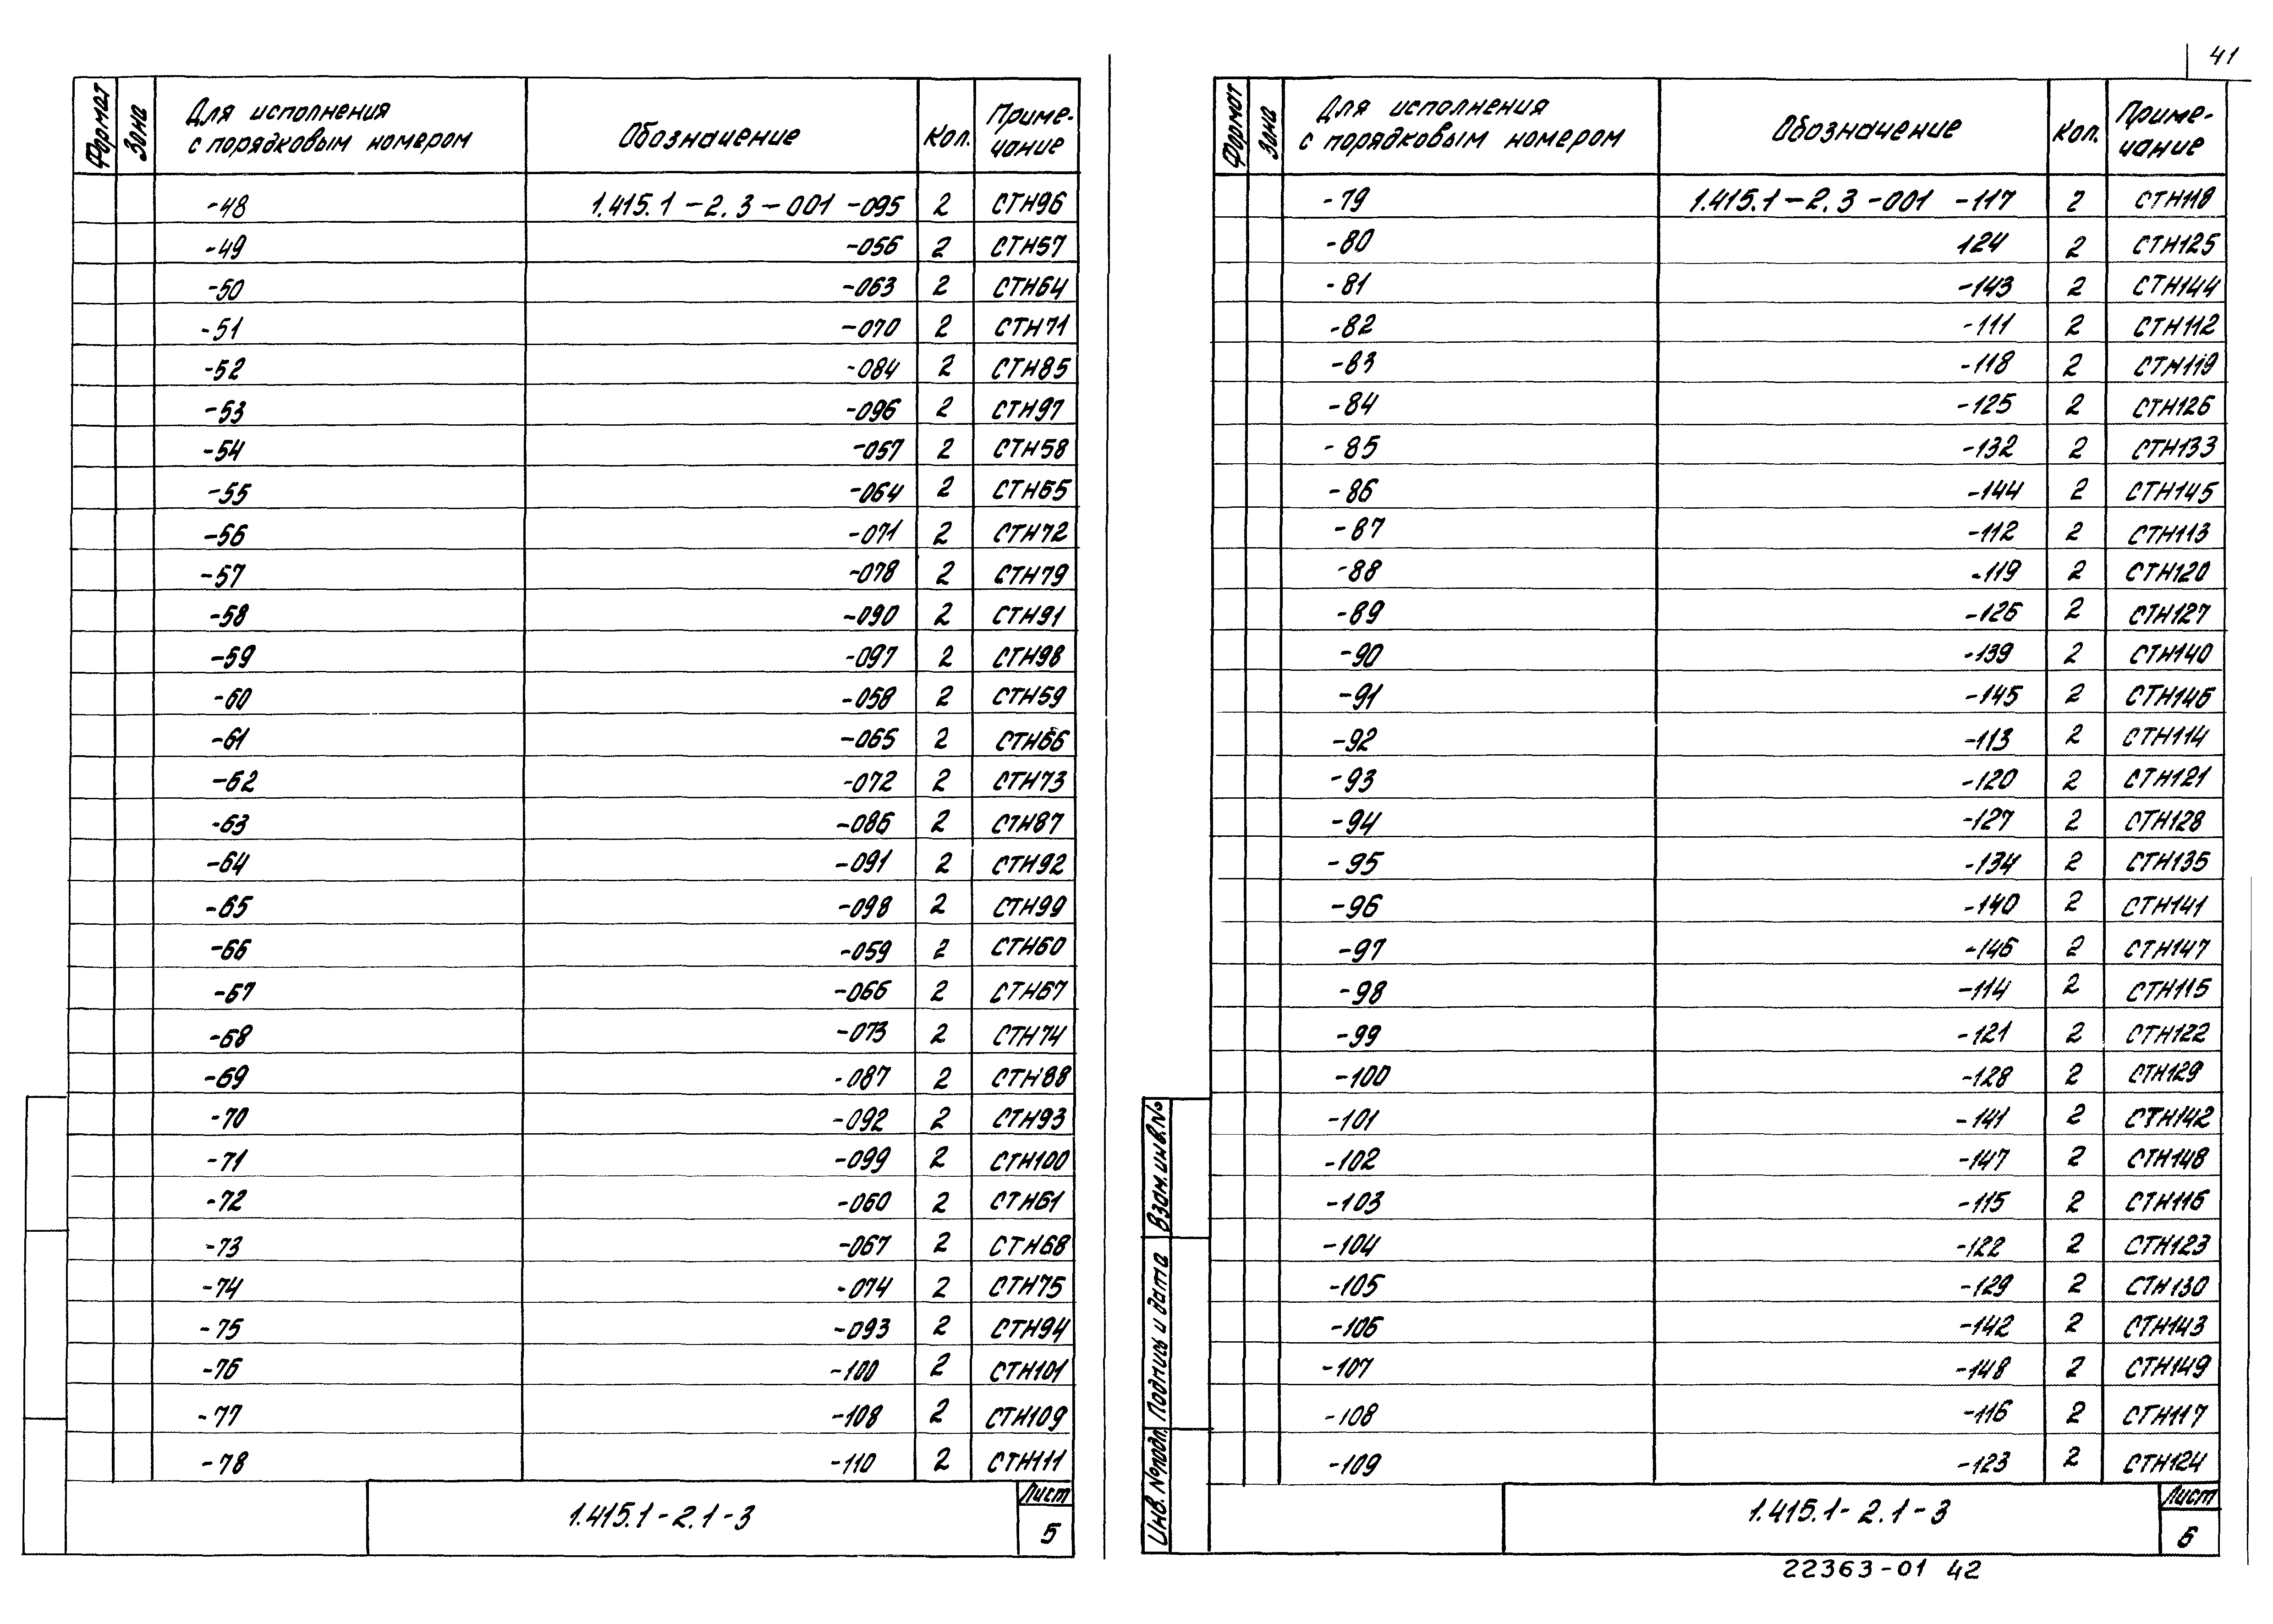 41
Формат Зона Для исполнения с порядковым номером Обозначение Кол. Приме-чание
-48 1.415.1-2.3-001 -095 2 СТН96
-49 -056 2 СТН57
-50 -063 2 СТН64
-51 -070 2 СТН71
-52 -084 2 СТН85
-53 -096 2 СТН97
-54 -057 2 СТН58
-55 -064 2 СТН65
-56 -071 2 СТН72
-57 -078 2 СТН79
-58 -090 2 СТН91
-59 -097 2 СТН98
-60 -058 2 СТН59
-61 -065 2 СТН66
-62 -072 2 СТН73
-63 -086 2 СТН87
-64 -091 2 СТН92
-65 -098 2 СТН99
-66 -059 2 СТН60
-67 -066 2 СТН67
-68 -073 2 СТН74
-69 -087 2 СТН88
-70 -092 2 СТН93
-71 -099 2 СТН100
-72 -060 2 СТН61
-73 -067 2 СТН68
-74 -074 2 СТН75
-75 -093 2 СТН94
-76 -100 2 СТН101
-77 -108 2 СТН109
-78 -110 2 СТН111
1.415.1-2.1-3
Лист
5
Формат Зона Для исполнения с порядковым номером Обозначение Кол. Приме-чание
-79 1.415.1-2.3-001 -117 2 СТН118
-80 124 2 СТН125
-81 -143 2 СТН144
-82 -111 2 СТН112
-83 -118 2 СТН119
-84 -125 2 СТН126
-85 -132 2 СТН133
-86 -144 2 СТН145
-87 -112 2 СТН113
-88 -119 2 СТН120
-89 -126 2 СТН127
-90 -139 2 СТН140
-91 -145 2 СТН146
-92 -113 2 СТН114
-93 -120 2 СТН121
-94 -127 2 СТН128
-95 -134 2 СТН135
-96 -140 2 СТН141
-97 -146 2 СТН147
-98 -114 2 СТН115
-99 -121 2 СТН122
-100 -128 2 СТН129
-101 -141 2 СТН142
-102 -147 2 СТН148
-103 -115 2 СТН116
-104 -122 2 СТН123
-105 -129 2 СТН130
-106 -142 2 СТН143
-107 -148 2 СТН149
-108 -116 2 СТН117
-109 -123 2 СТН124
Взам.инв.№
Подпись и дата
Инв. № подл.
1.415.1-2.1-3
Лист
6
22363-01 42